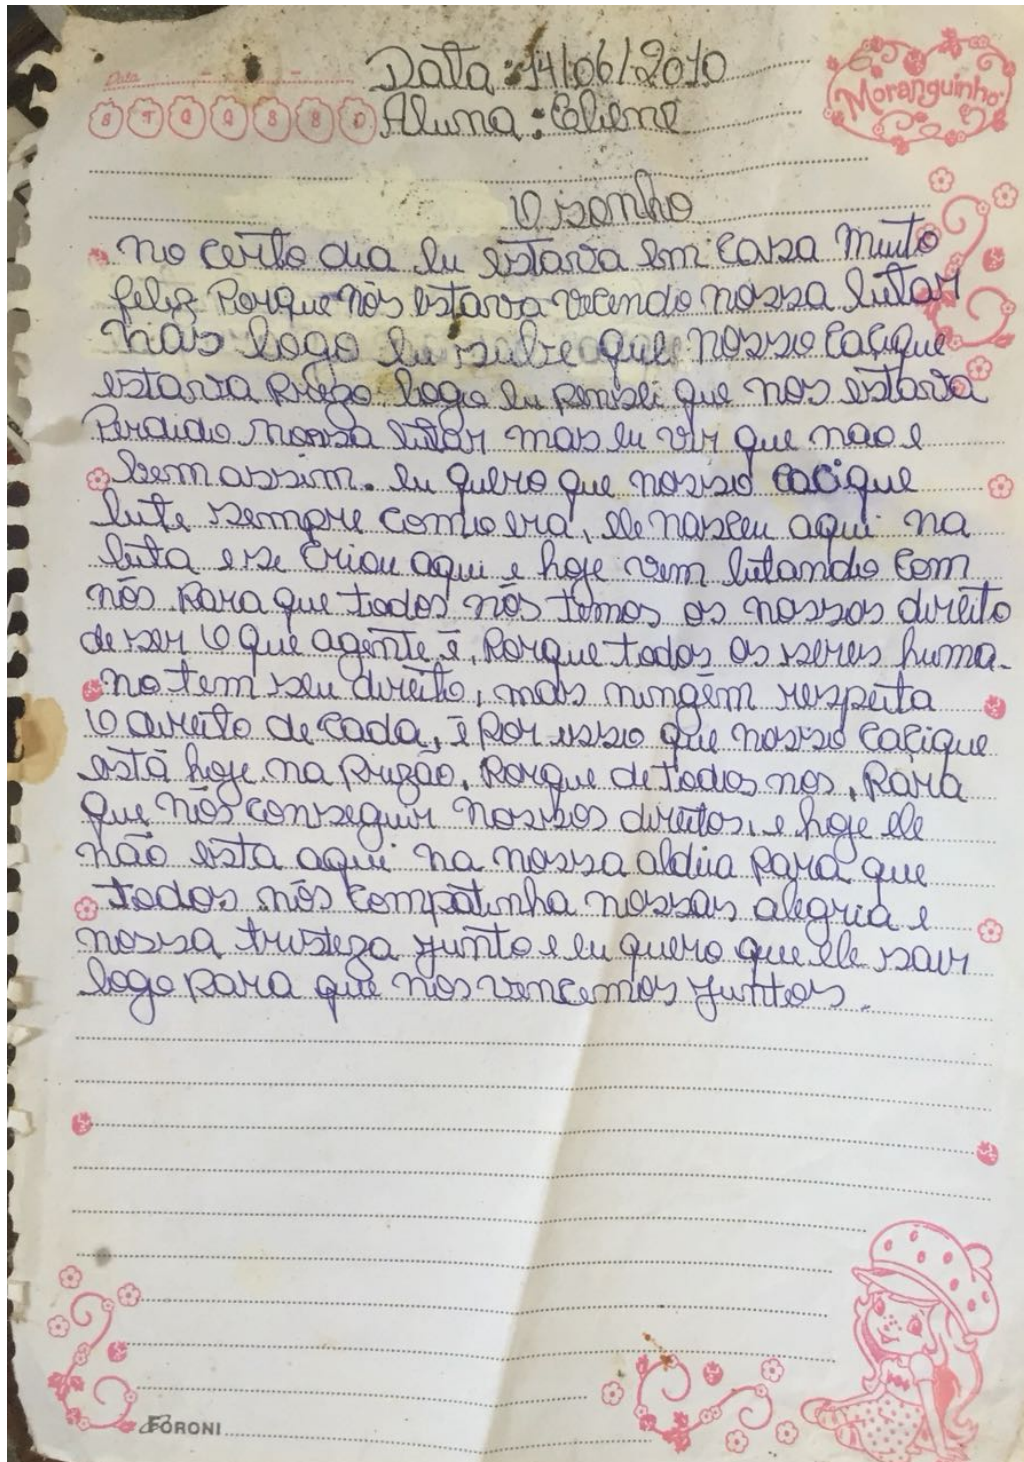 Data
Data: 14/06/2010
Moranguinho
S T Q Q S S D
Aluna: Eliene
O sonho
No certo dia eu estava em casa muito
feliz Porque nós estava vecendo nossa lutar
mas logo eu sube que nosso caçique
estava prezo. logo eu pensei que nos estava
Perdido nossa lutar mas eu vir que não e
bem assim. eu quero que nosso cacique
lute sempre como era, ele nasceu aqui na
luta e se criou aqui e hoje vem lutando com
nós para que todos nós temos os nossos direito
de ser O que agente é, Porque todos os seres huma-
no tem seu direito, mas ningêm respeita
O direito de cada, é por isso que nosso caçique
está hoje na prizão, Porque de todos nos, Para
que nós conseguir nossos direitos, e hoje ele
não esta aqui na nossa aldeia para que
todos nós compatinha nossas alegria e
nossa tristeza junto e eu quero que ele sair
logo para que nós vencemos juntos.
FORONI